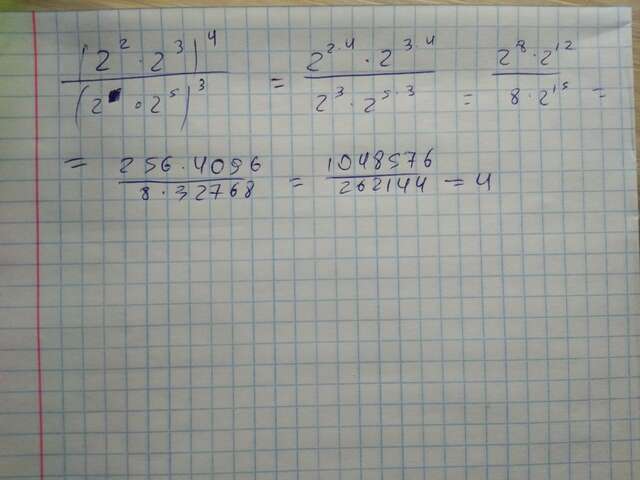 (2² · 2³)⁴ / (2 · 2⁵)³ = 2²·⁴ · 2³·⁴ / 2³ · 2⁵·³ = 2⁸ · 2¹² / 8 · 2¹⁵ =
= 256 · 4096 / 8 · 32768 = 1048576 / 262144 = 4